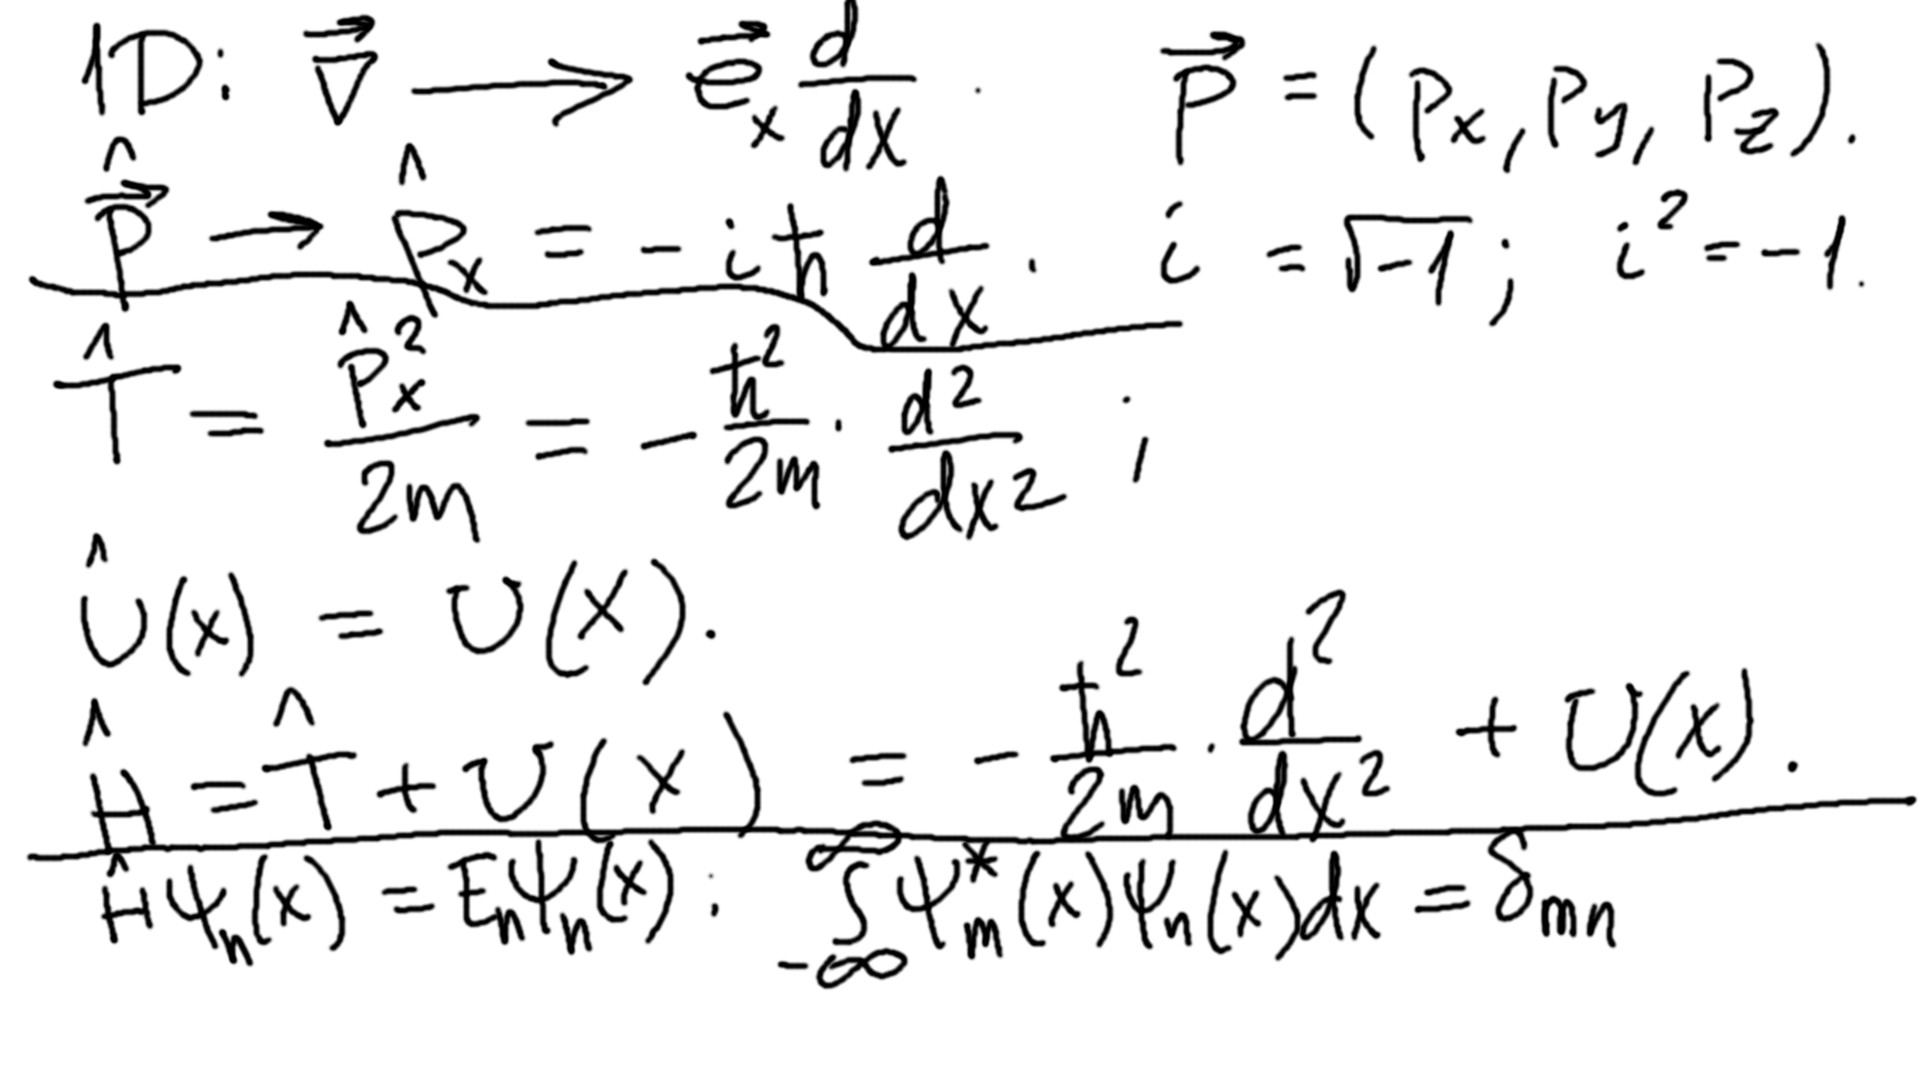 1D: ∇⃗ ⟶ e⃗ₓ d/dx . p⃗ = (pₓ, p_y, p_z).
p̂⃗ → p̂ₓ = -iħ d/dx . i = √-1; i² = -1.
T̂ = p̂ₓ²/2m = - ħ²/2m · d²/dx² ;
Û(x) = U(x).
Ĥ = T̂ + U(x) = - ħ²/2m · d²/dx² + U(x).
Ĥψₙ(x) = Eₙψₙ(x); ∫_{-∞}^{∞} ψₘ*(x)ψₙ(x)dx = δₘₙ